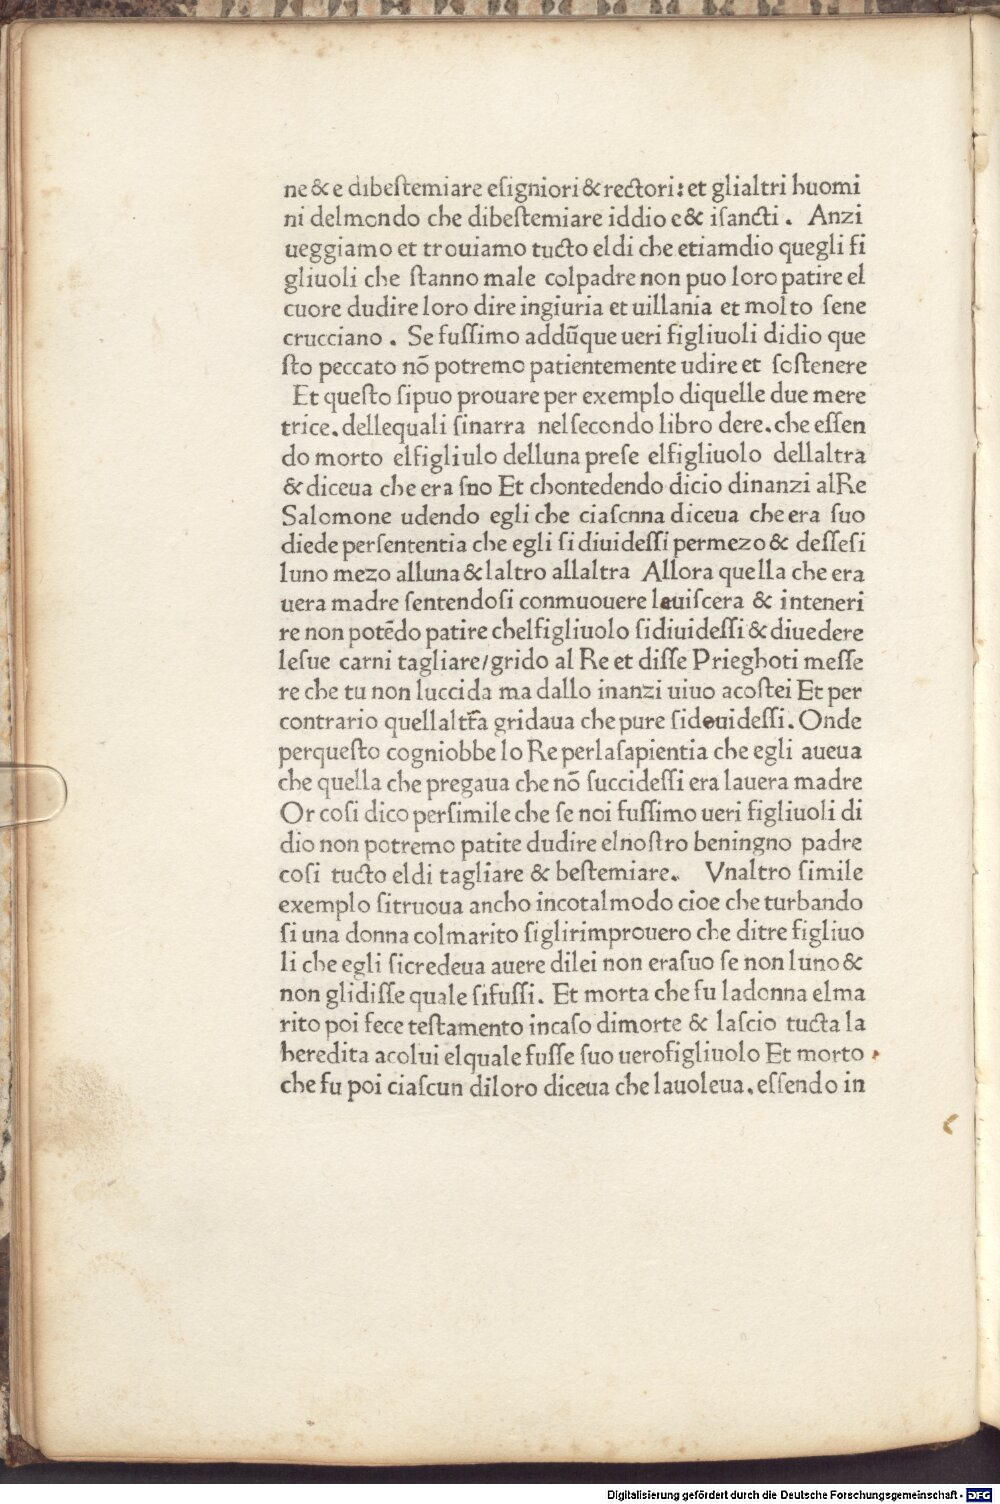 ne & e dibeſtemiare eſigniori & rectori: et glialtri huomi
ni delmondo che dibeſtemiare iddio e & iſancti. Anzi
ueggiamo et trouiamo tucto eldi che etiamdio quegli fi
gliuoli che ſtanno male colpadre non puo loro patire el
cuore dudire loro dire ingiuria et uillania et molto ſene
crucciano. Se fuſſimo addūque ueri figliuoli didio que
ſto peccato nō potremo patientemente udire et ſoſtenere
Et queſto ſipuo prouare per exemplo diquelle due mere
trice. dellequali ſinarra nelſecondo libro dere. che eſſen
do morto elfigliulo delluna preſe elfigliuolo dellaltra
& diceua che era ſno Et chontedendo dicio dinanzi alRe
Salomone udendo egli che ciaſcnna diceua che era ſuo
diede perſententia che egli ſi diuideſſi permezo & deſſeſi
luno mezo alluna & laltro allaltra Allora quella che era
uera madre ſentendoſi conmuouere leuiſcera & inteneri
re non potēdo patire chelfigliuolo ſidiuideſſi & diuedere
leſue carni tagliare/grido al Re et diſſe Prieghoti meſſe
re che tu non luccida ma dallo inanzi uiuo acoſtei Et per
contrario quellaltra gridaua che pure ſideuideſſi. Onde
perqueſto cogniobbe lo Re perlaſapientia che egli aueua
che quella che pregaua che nō ſuccideſſi era lauera madre
Or coſi dico perſimile che ſe noi fuſſimo ueri figliuoli di
dio non potremo patite dudire elnoſtro beningno padre
coſi tucto eldi tagliare & beſtemiare. Vnaltro ſimile
exemplo ſitruoua ancho incotalmodo cioe che turbando
ſi una donna colmarito ſiglirimprouero che ditre figliuo
li che egli ſicredeua auere dilei non eraſuo ſe non luno &
non glidiſſe quale ſifuſſi. Et morta che fu ladonna elma
rito poi fece teſtamento incaſo dimorte & laſcio tucta la
heredita acolui elquale fuſſe ſuo uerofigliuolo Et morto
che fu poi ciaſcun diloro diceua che lauoleua. eſſendo in
Digitalisierung gefördert durch die Deutsche Forschungsgemeinschaft - DFG